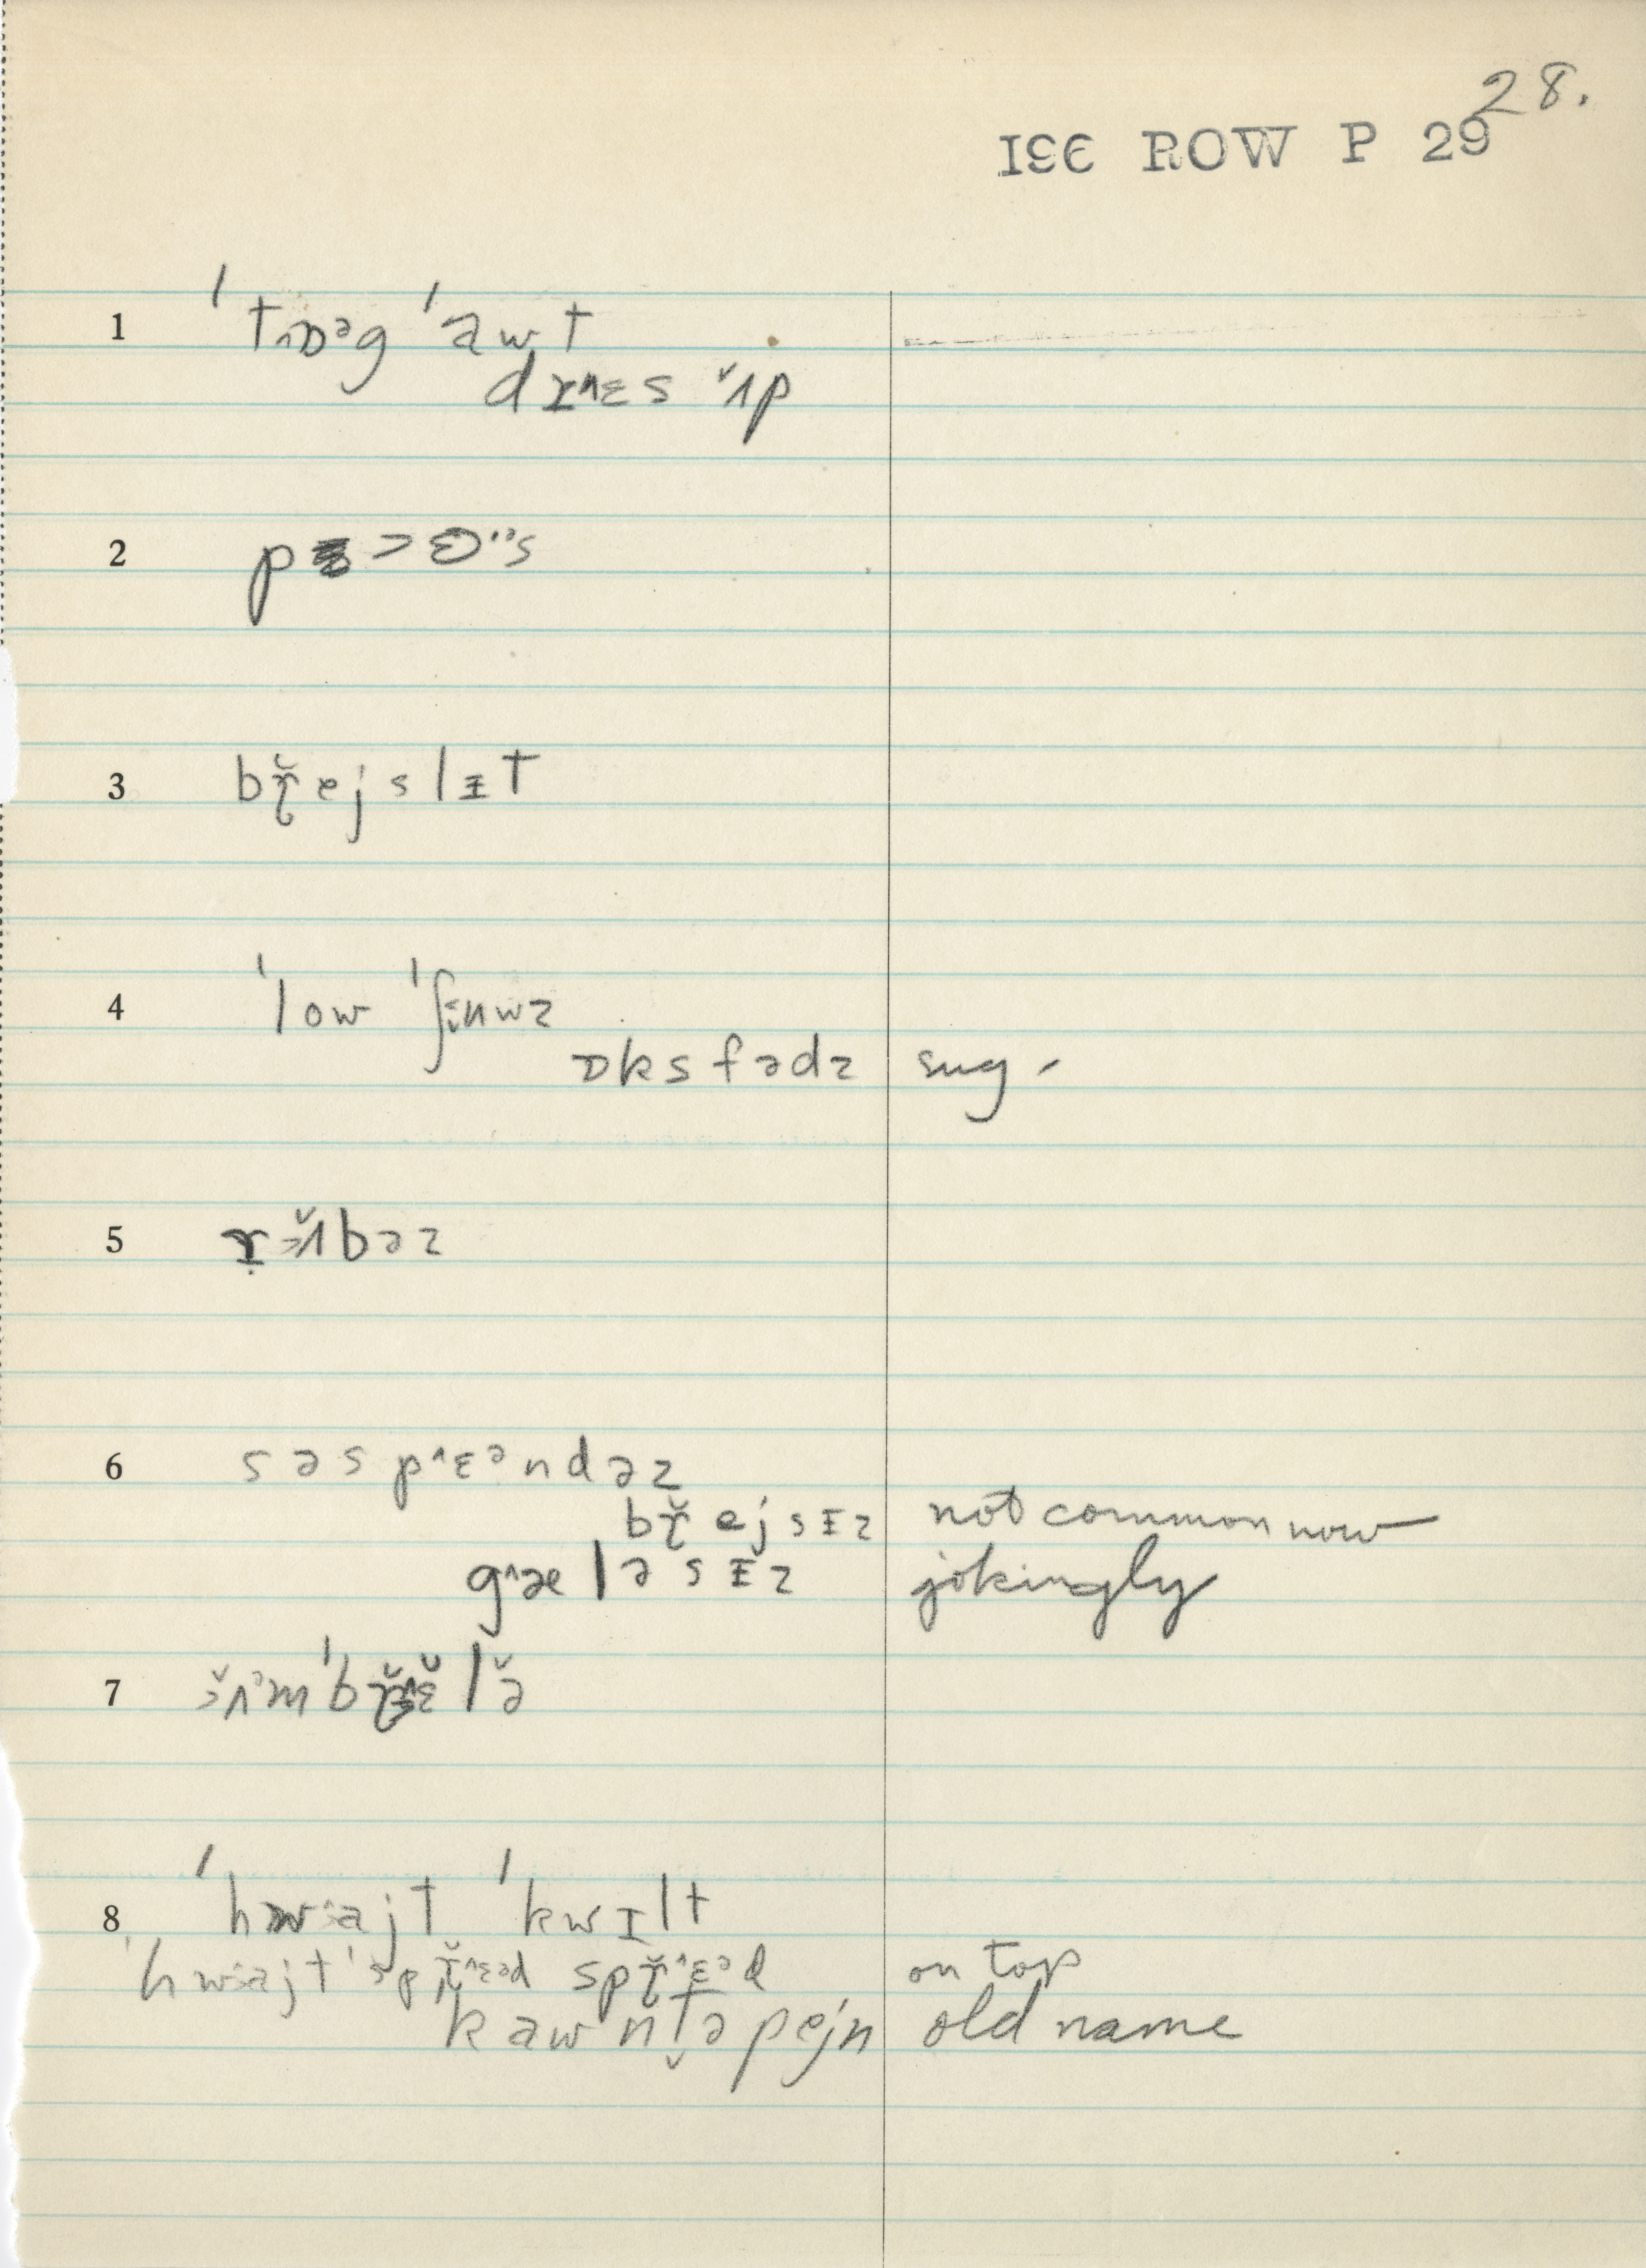 28.
ISC ROW P 29
1 ˈtɒᵊg ˈawt
drɛs ʌp
2
3 bɽ̆ejslɪt
4 ˈlow ˈʃuwz
ɒksfədz sug -
5 bəz
6 səspˆɛᵊndəz
bɽ̆ejsɪz not common now
gˆæləsɪz jokingly
7
8 ˈhwajt ˈkwɪlt
ˈhwajt ˈspɽ̆ˆɛᵊd spɽ̆ˆɛᵊd on top
kawntəpejn old name